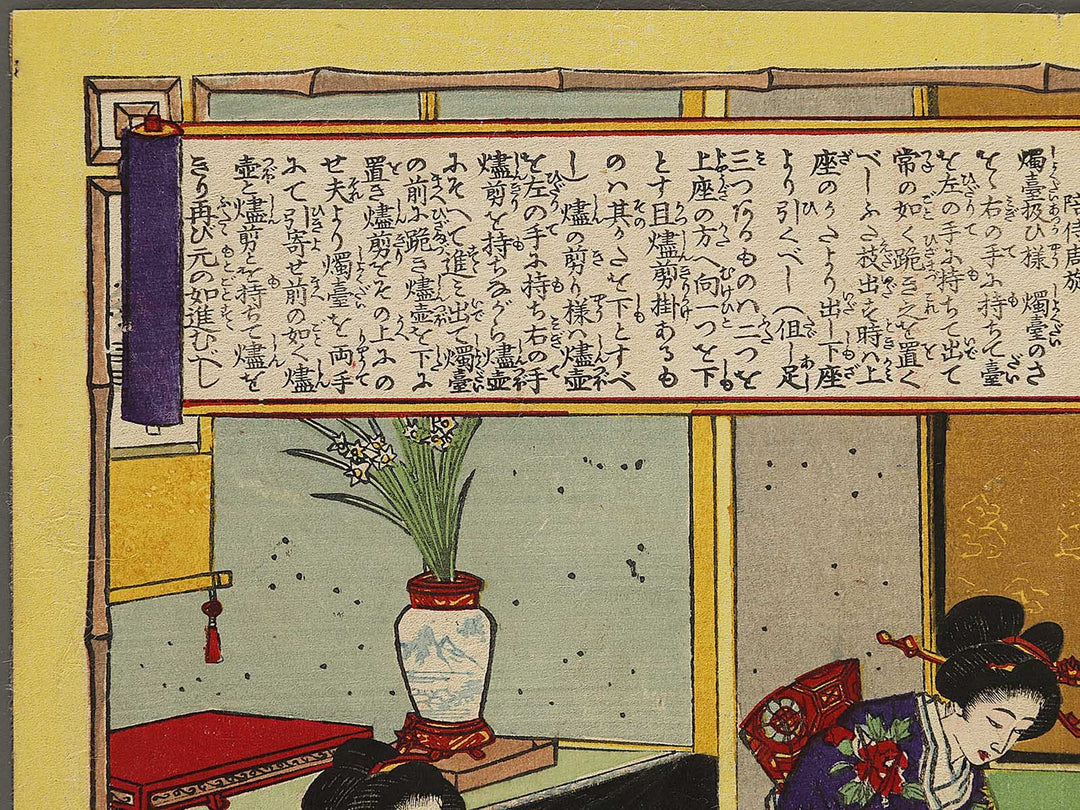 陪侍声族
燭臺扱ひ様　燭臺のさ
を右の手に持ちて臺
を左の手に持ちて出て
常の如く跪き之を置く
べしふた枝出を時ハ上
座のかたより出し下座
より引くべし（但し足
三つなるものハ二つを
上座の方へ向一つを下
とす且燼剪掛あるも
のハ其かたを下とすべ
し　燼の剪り様ハ燼壺
を左の手に持ち右の手
燼剪を持ちながら燼壺
にそへて進ミ出て燭臺
の前に跪き燼壺を下に
置き燼剪をその上にの
せ夫より燭臺を両手
にて引寄せ前の如く燼
壺と燼剪とを持ちて燼を
きり再び元の如進むべし